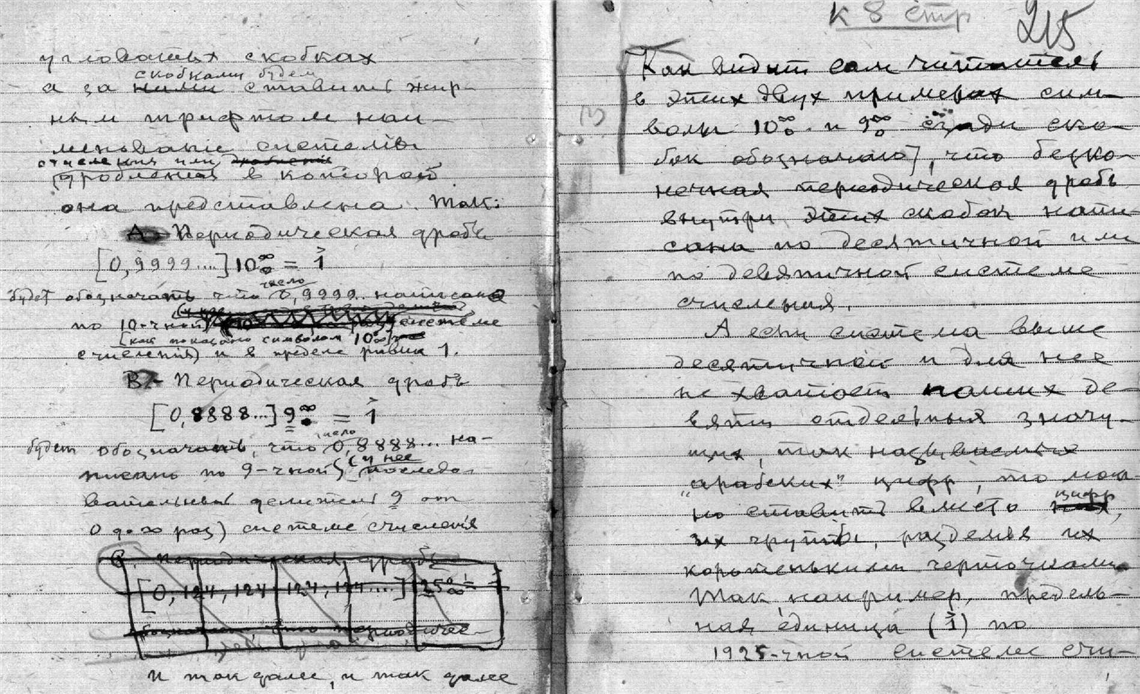 угловатых скобках
скобками будем
а за ними ставить жир-
ным шрифтом наи-
менование системы
счисления или
дробления в которой
она представлена. Так:
А. Периодическая дробь
[0,9999...]10 = 1
число
будет обозначать что 0,9999... написано
по 10-чной системе
(как показано символом 10
счисления) и в пределе равна 1.
В. Периодическая дробь
[0,8888...] 9 = 1
число
будет обозначать, что 0,8888... на-
писано по 9-чной (у нее
последо-
вательный делитель 9 от
0 до ∞ раз) системе счисления
С. Периодическая дробь
[0,124, 124, 124, 124...] 25 =
и так далее, и так далее
к 8 стр
215
Как видит сам читатель
в этих двух примерах сим-
волы 10 и 9 сзади ско-
бок обозначают, что безко-
нечная периодическая дробь
внутри этих скобок напи-
сана по десятичной или
по девятичной системе
счисления.
А если система выше
десятичной и для нее
не хватает наших де-
вяти отдельных значу-
щих, так называемых
"арабских" цифр, то мож-
цифр
но ставить вместо
их группы, разделяя их
коротенькими черточками.
Так, например, предель-
ная единица (1) по
1925-чной системе счи-